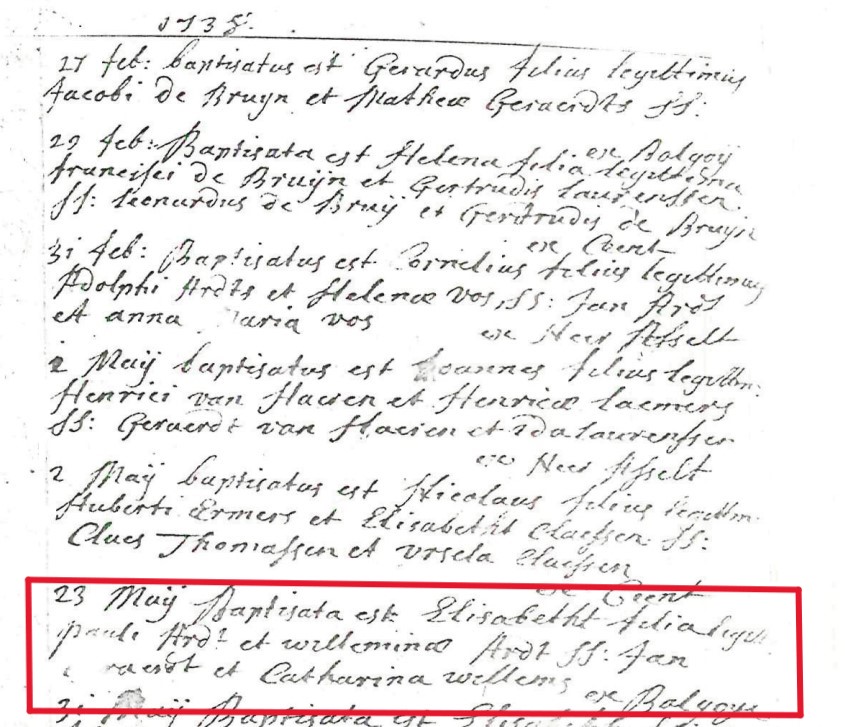 1738.
27 feb: baptisatus est Gerardus filius legittimus
Jacobi de Bruyn et Matheæ Geraerdts SS:
ex Balgoij
29 feb: Baptisata est Helena filia legittima
francisci de Bruijn et Gertrudis laurenssen
SS: leonardus de Bruij et Gertrudis de Bruijn
ex Cĕent
31 feb: Baptisatus est Cornelius filius legittimus
Adolphi Ardts et Helenæ vos, SS: Jan Ardt
et anna aria vos
ex Neer Asselt
2 Maij baptisatus est Joannes filius legittim:
Henrici van Haeren et Henricæ laemers
SS: Geraerdt van Haeren et Ida laurenssen
ex Neer Asselt
2 Maij baptisatus est Nicolaus filius legittm:
Huberti Ermers et Elisabetht Claessen SS:
Claes Thomassen et vrsela Claessen
Cĕent
23 Maij Baptisata est Elisabetht filia legitt
pauli Ardt et willeminæ Ardt SS: Jan
raerdt et Catharina willems
ex Balgoye
31 Maij Baptisata est Elisabetht